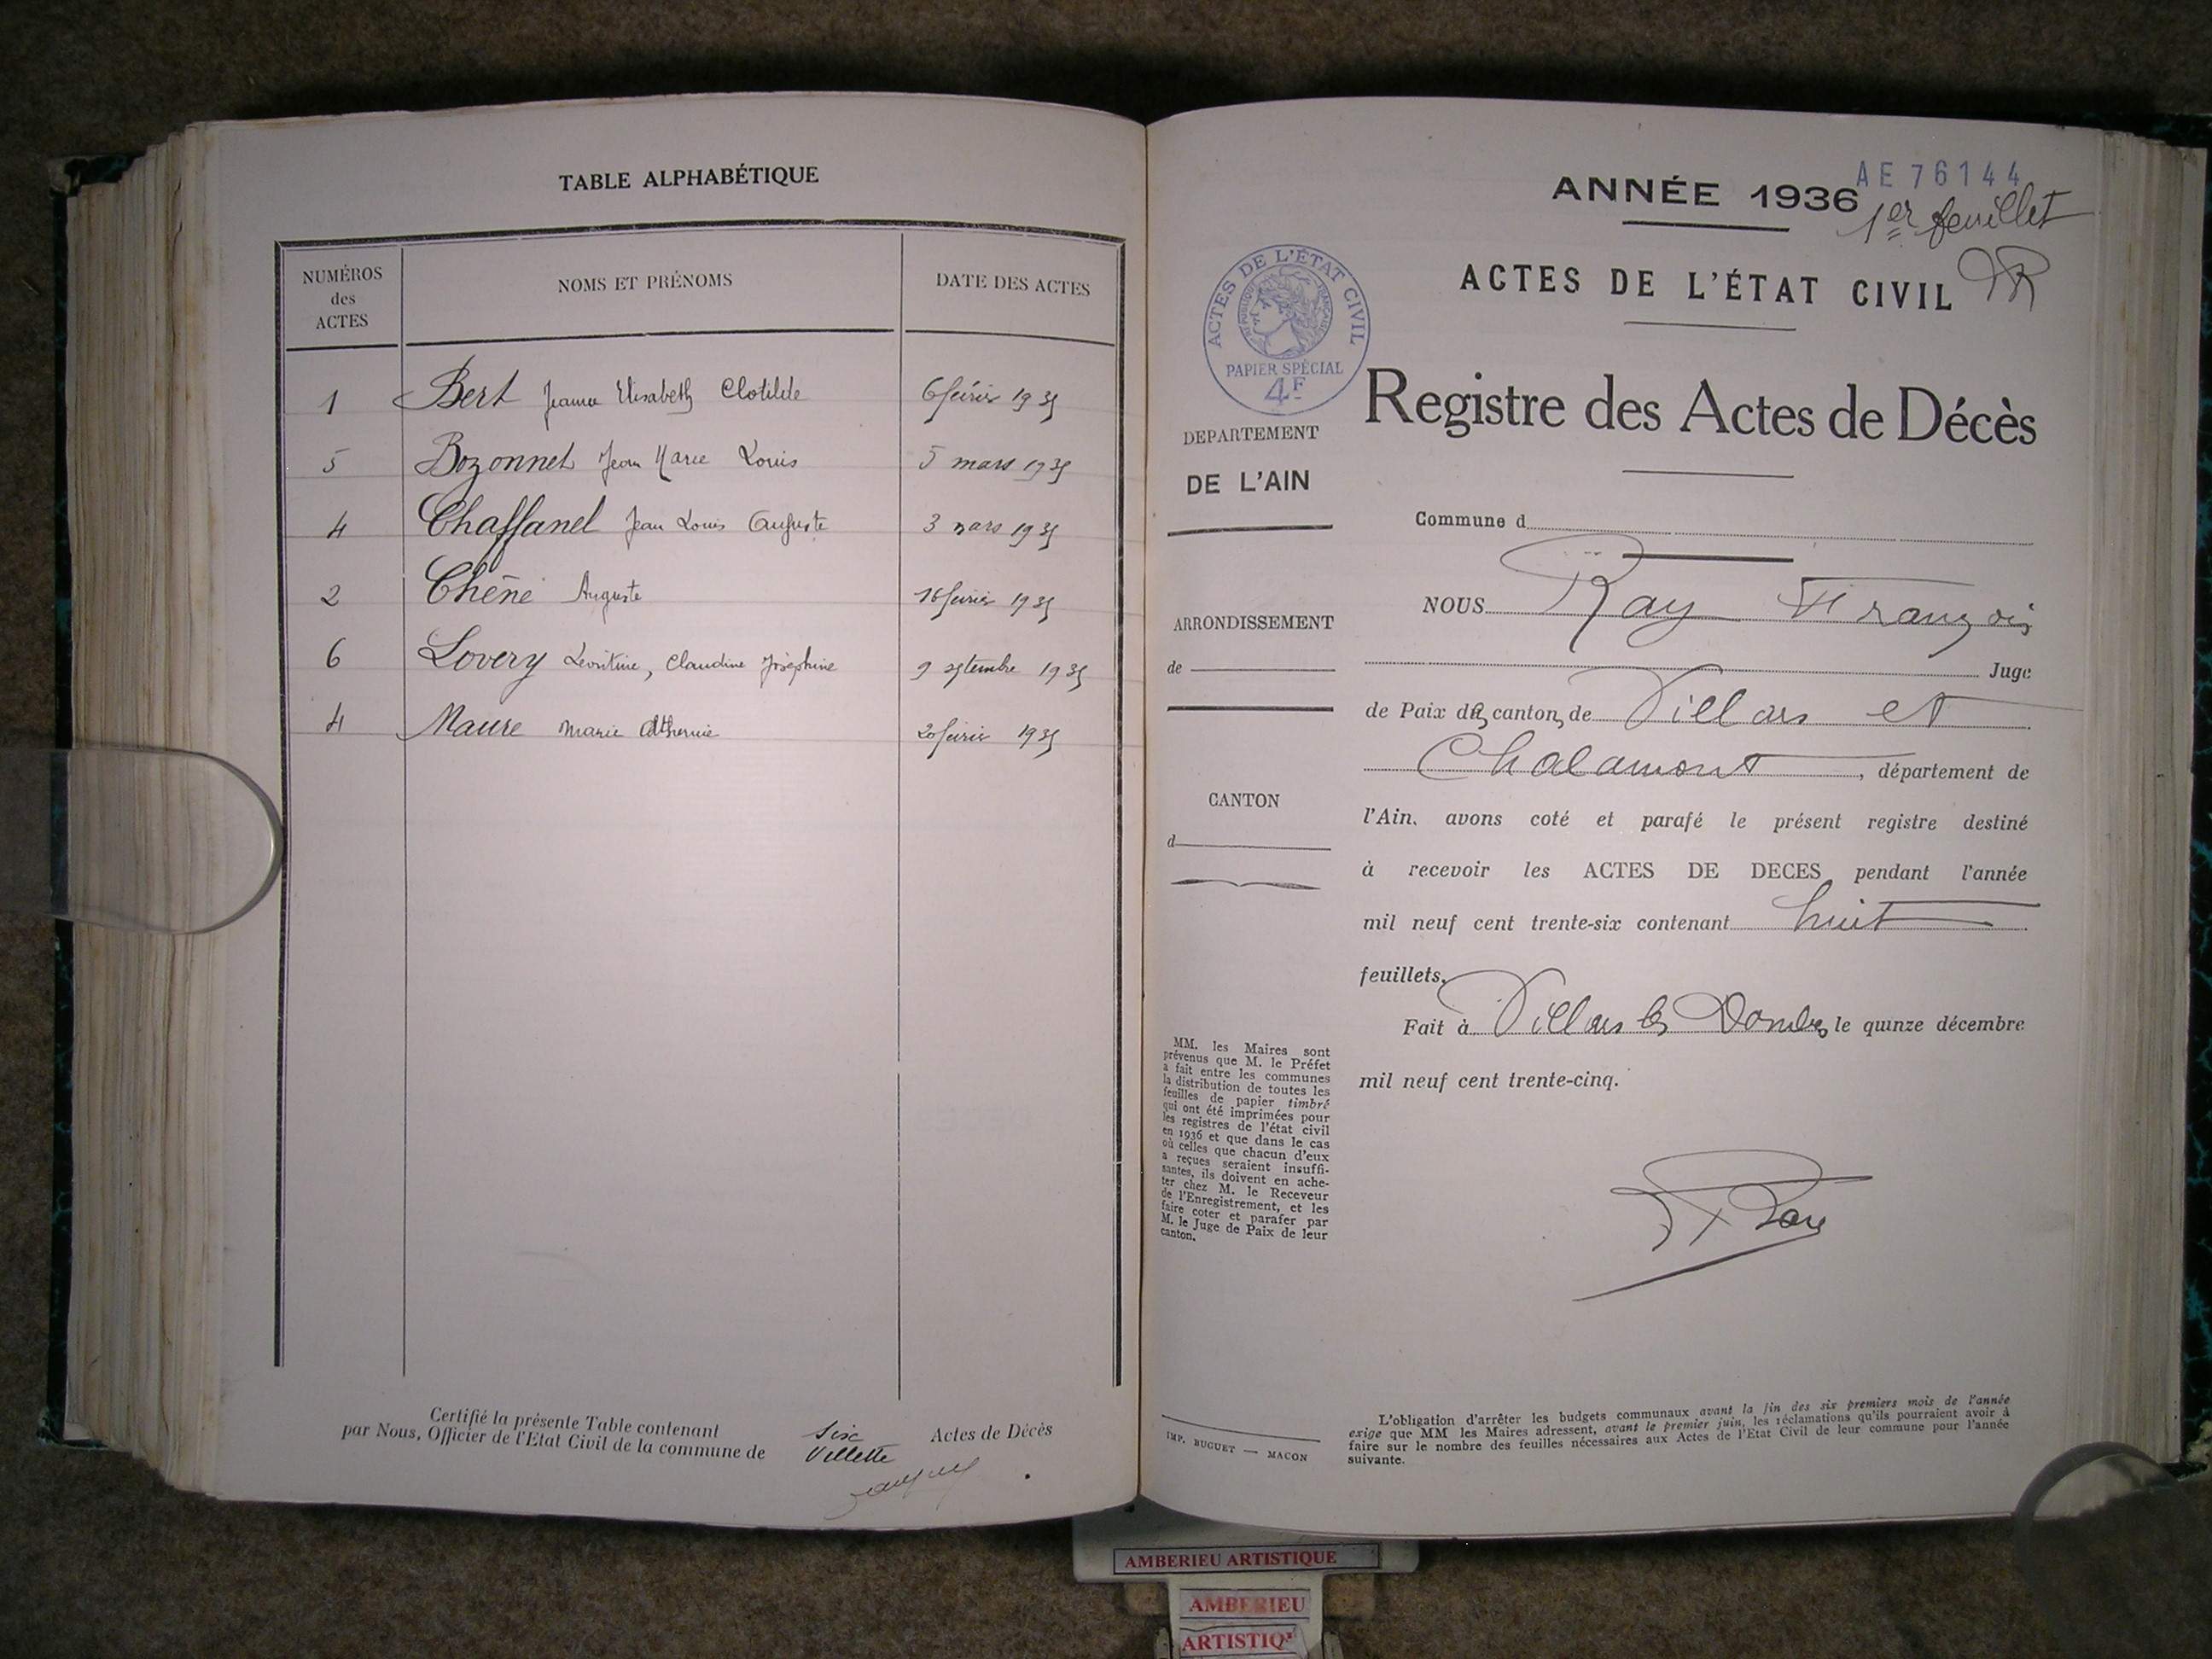 TABLE ALPHABÉTIQUE
NUMÉROS
des
ACTES
NOMS ET PRÉNOMS
DATE DES ACTES
1 Bert Jeanne Elisabeth Clotilde 6 février 1935
5 Bozonnet Jean Marie Louis 5 mars 1935
4 Chaffanel Jean Louis Auguste 3 mars 1935
2 Chêne Auguste 16 février 1935
6 Lovery Léontine, Claudine Joséphine 9 septembre 1935
4 Maure Marie Catherine 20 février 1935
Certifié la présente Table contenant Six Actes de Décès
par Nous, Officier de l'Etat Civil de la commune de Villette
AE 76144
ANNÉE 1936
1er feuillet
ACTES DE L'ÉTAT CIVIL
FR
ACTES DE L'ÉTAT CIVIL
RÉPUBLIQUE FRANÇAISE
PAPIER SPÉCIAL
4F
Registre des Actes de Décès
DEPARTEMENT
DE L'AIN
ARRONDISSEMENT
de
CANTON
d
MM. les Maires sont
prévenus que M. le Préfet
a fait entre les communes
la distribution de toutes les
feuilles de papier timbré
qui ont été imprimées pour
les registres de l'état civil
en 1936 et que dans le cas
où celles que chacun d'eux
a reçues seraient insuffi-
santes, ils doivent en ache-
ter chez M. le Receveur
de l'Enregistrement, et les
faire coter et parafer par
M. le Juge de Paix de leur
canton.
IMP. BUGUET — MACON
Commune d
NOUS Ray François
Juge
de Paix des cantons de Villars et
Chalamont, département de
l'Ain, avons coté et parafé le présent registre destiné
à recevoir les ACTES DE DECES pendant l'année
mil neuf cent trente-six contenant huit
feuillets.
Fait à Villars les Dombes le quinze décembre
mil neuf cent trente-cinq.
F Ray
L'obligation d'arrêter les budgets communaux avant la fin des six premiers mois de l'année
exige que MM les Maires adressent, avant le premier juin, les réclamations qu'ils pourraient avoir à
faire sur le nombre des feuilles nécessaires aux Actes de l'Etat Civil de leur commune pour l'année
suivante.
AMBERIEU ARTISTIQUE
AMBERIEU
ARTISTIQ